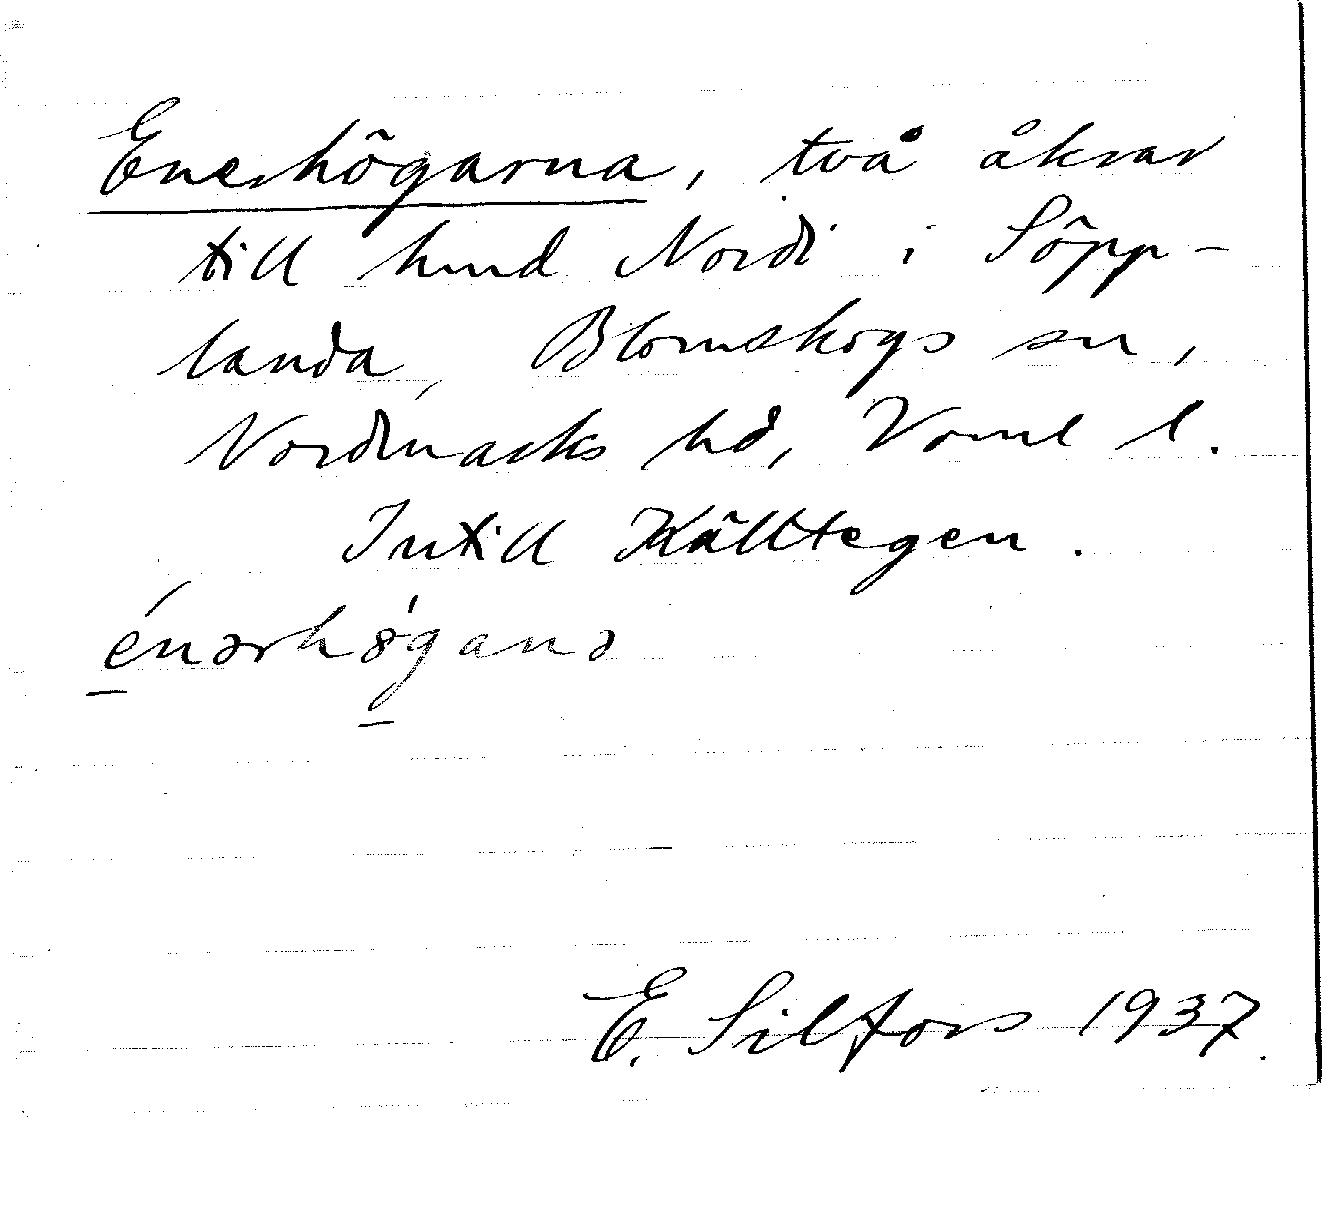 Enerhögarna, två åkrar
till hmd Nordi i Söpp-
landa, Blomskogs sn,
Nordmarks hd, Vrml l.
Intill Källtegen.
énərhøganə
E. Silfors 1937.